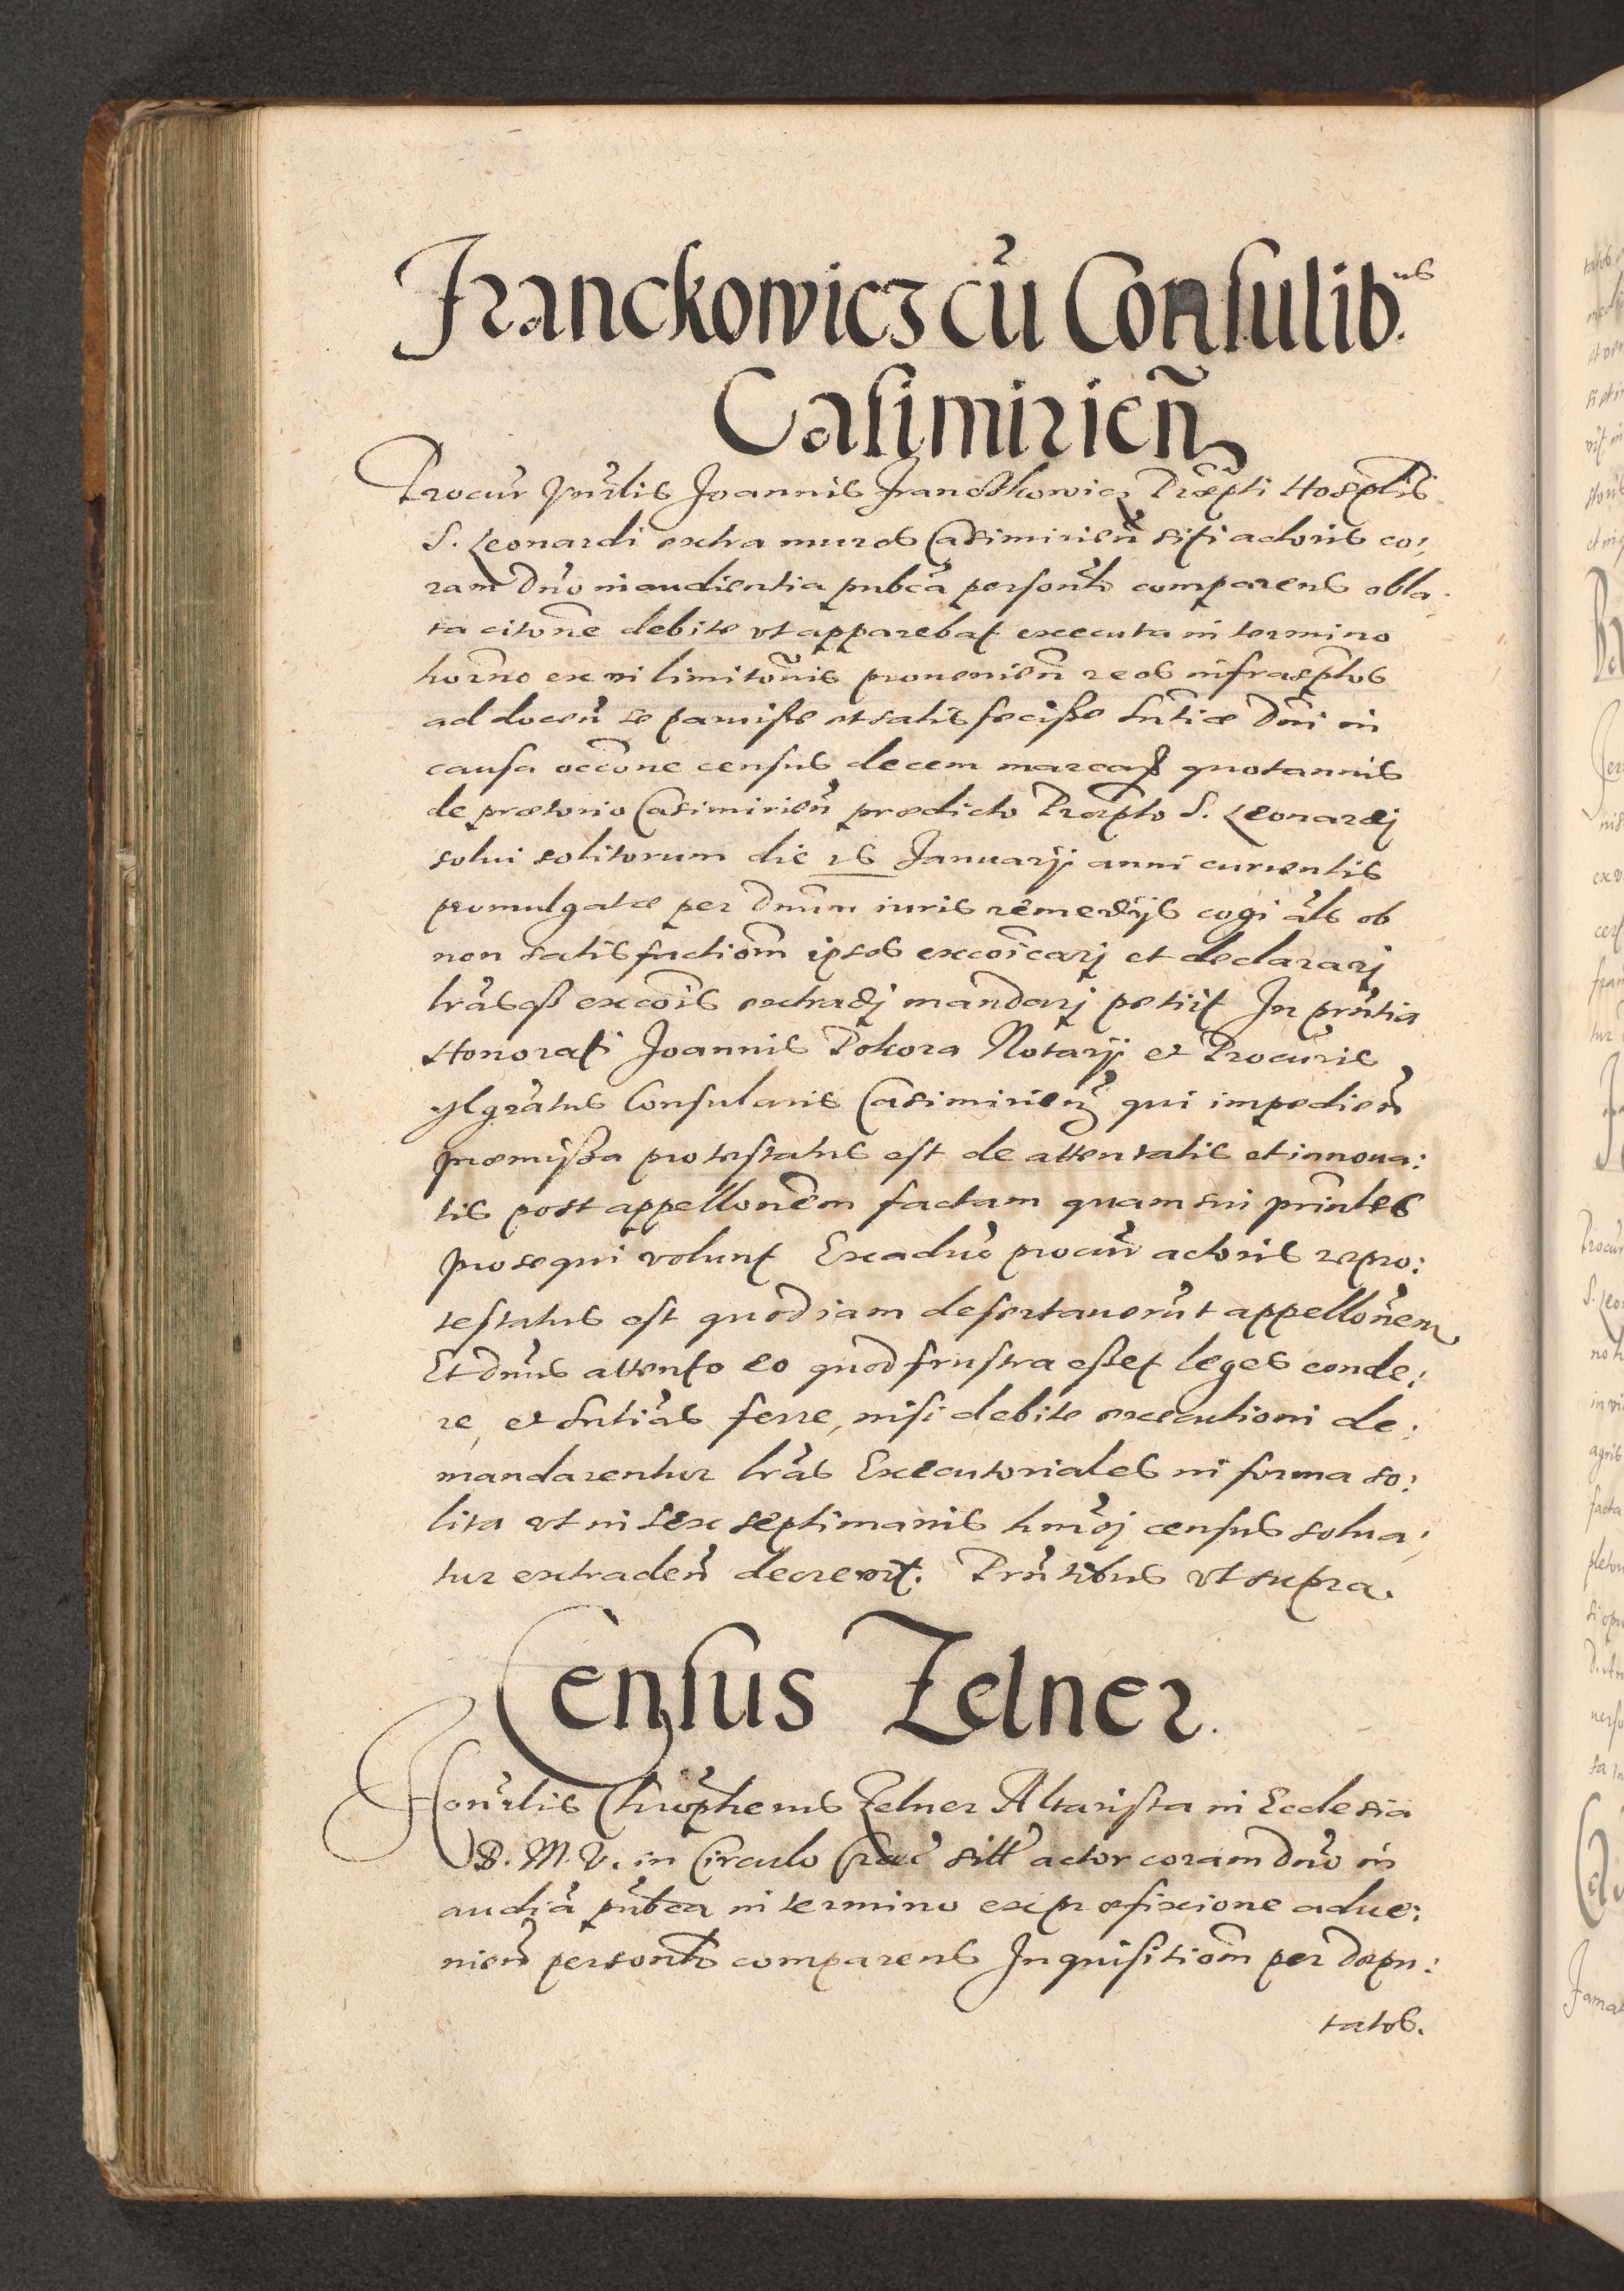 Franckowicz cũ Consulib.us
Casimirien̄
Procur Vnrlis Joannis Franckowicz Præpti Hosplis
S. Leonardi extra muros Casimirien̄ siti actoris co:
ram Dno in audientia pubca personłr comparens obla
ta citone debite vt apparebat executa in termino
horno ex vi limitonis prouenien̄ reos infrascptos
ad docen̄ se paruisse et satis fecisse Sntiæ Dni in
causa occone census decem marcaʀ quotannis
de prætorio Casimirien̄ prædicto Præpto S. Leonardj
solui solitorum die 26 Januarij anni currentis
promulgatæ per Dnum iuris remedijs cogi als ob
non satisfactiom ipsos excoicarj et declararj
lrasqȝ excois extradj mandarj petiit In prntia
Honorati Joannis Pokora Notarij et Procuris
Mgratus Consularis Casimirien̄ qui impedien̄
præmissa protestatus est de attentatis et innoua:
tis post appellonem factam quam sui prinles
prosequi volunt Exaduo procur actoris repro:
testatus est quod iam desertauerunt appellonem
Et Dnus attento eo quod frustra esset leges conde:
re, et Sntias ferre, nisi debite executioni de:
mandarentur lras Executoriales in forma so:
lita vt in sex septimanis hmoj census solua:
tur extraden̄ decreuit. Prntibus vt supra.
Census Zelner.
Honrlis Chrophorus Zelner Altarista in Ecclesia
B. M. V. in Circulo Crac sitt actor coram Dno in
audia pubca in termino ex præfixione adue:
nien̄ personłr comparens Inquisitiom per Depu:
tatos.